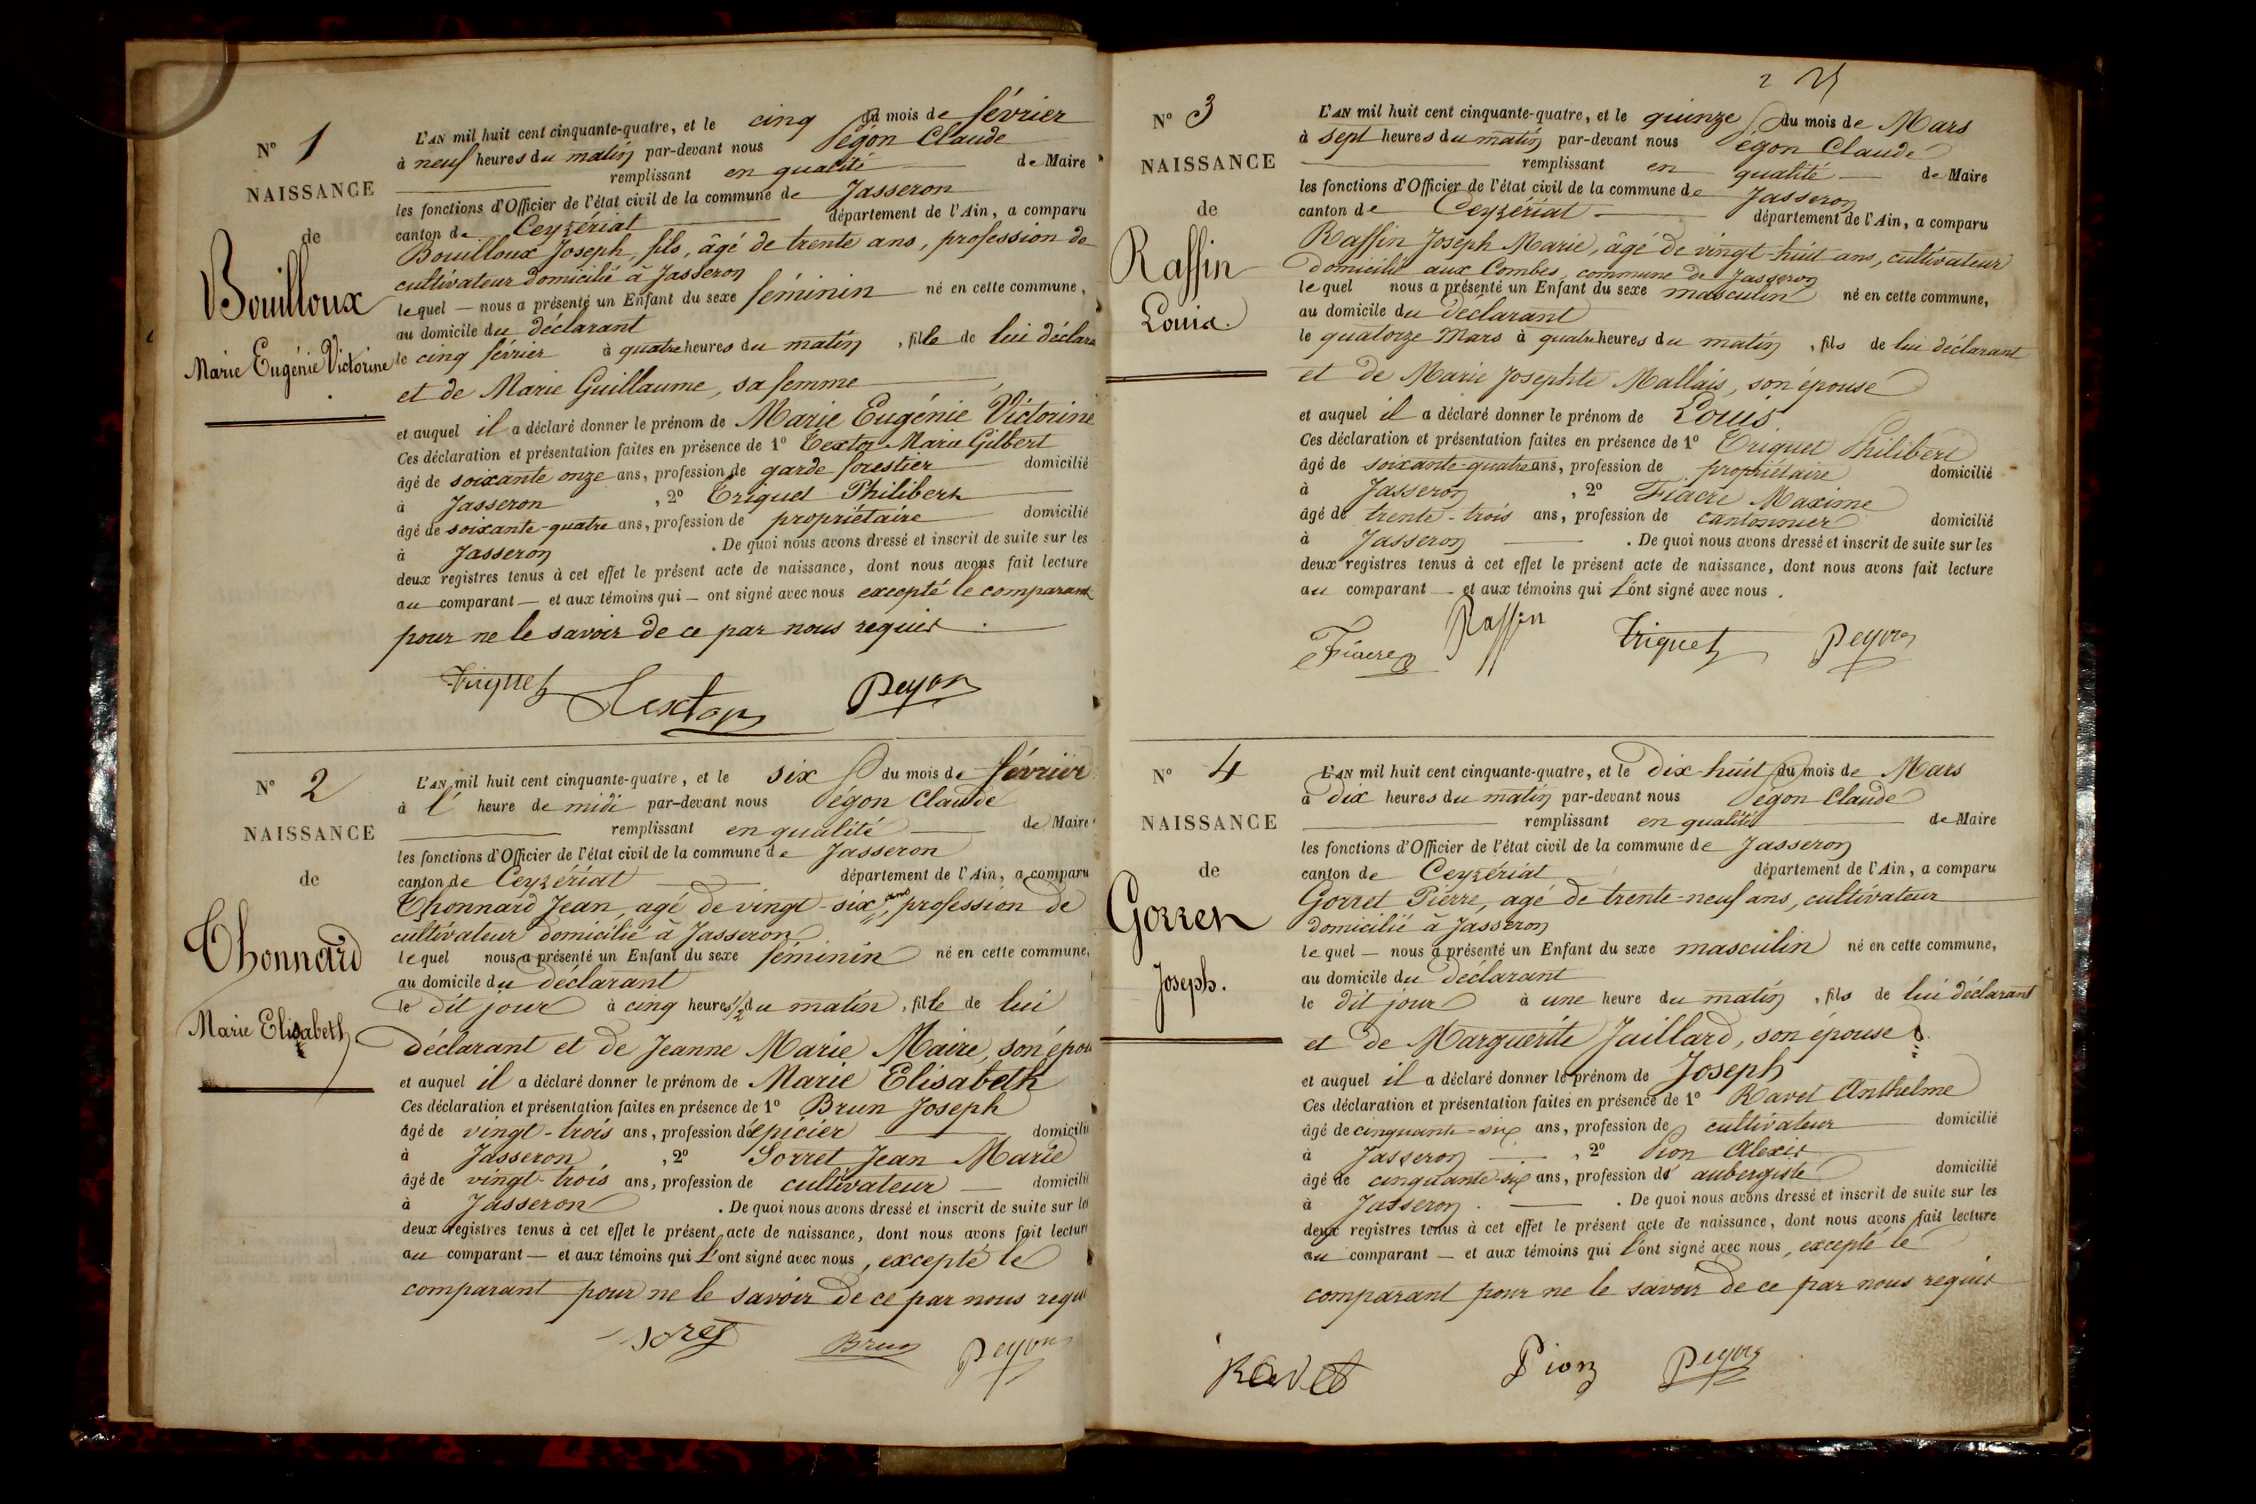 N° 1
NAISSANCE
de
Bouilloux
Marie Eugénie Victorine
L'AN mil huit cent cinquante-quatre, et le cinq du mois de février
à neuf heures du matin par-devant nous Ségon Claude
remplissant en qualité de Maire
les fonctions d'Officier de l'état civil de la commune de Jasseron
canton de Ceyzériat département de l'Ain, a comparu
Bouilloux Joseph, fils, âgé de trente ans, profession de
cultivateur domicilié à Jasseron
lequel — nous a présenté un Enfant du sexe féminin né en cette commune,
au domicile du déclarant
le cinq février à quatre heures du matin, fille de lui déclara
et de Marie Guillaume, sa femme
et auquel il a déclaré donner le prénom de Marie Eugénie Victorine
Ces déclaration et présentation faites en présence de 1° Texton Marie Gilbert
âgé de soixante onze ans, profession de garde forestier domicilié
à Jasseron, 2° Triquet Philibert
âgé de soixante-quatre ans, profession de propriétaire domicilié
à Jasseron. De quoi nous avons dressé et inscrit de suite sur les
deux registres tenus à cet effet le présent acte de naissance, dont nous avons fait lecture
au comparant — et aux témoins qui — ont signé avec nous excepté le comparant
pour ne le savoir de ce par nous requis.
Triquet Texton Peyon
N° 2
NAISSANCE
de
Thonnard
Marie Elisabeth
L'AN mil huit cent cinquante-quatre, et le six du mois de février
à l' heure de midi par-devant nous Ségon Claude
remplissant en qualité de Maire
les fonctions d'Officier de l'état civil de la commune de Jasseron
canton de Ceyzériat département de l'Ain, a comparu
Thonnard Jean, agé de vingt-six ans, profession de
cultivateur domicilié à Jasseron
lequel nous a présenté un Enfant du sexe féminin né en cette commune,
au domicile du déclarant
le dit jour à cinq heures 1/2 du matin, fille de lui
déclarant et de Jeanne Marie Maire, son épou
et auquel il a déclaré donner le prénom de Marie Elisabeth
Ces déclaration et présentation faites en présence de 1° Brun Joseph
âgé de vingt-trois ans, profession d'épicier domicilié
à Jasseron, 2° Sorret Jean Marie
âgé de vingt-trois ans, profession de cultivateur — domicilié
à Jasseron. De quoi nous avons dressé et inscrit de suite sur les
deux registres tenus à cet effet le présent acte de naissance, dont nous avons fait lecture
au comparant — et aux témoins qui l'ont signé avec nous, excepté le
comparant pour ne le savoir de ce par nous requ
Brun Peyon
2
N° 3
NAISSANCE
de
Raffin
Louis.
L'AN mil huit cent cinquante-quatre, et le quinze du mois de Mars
à sept heures du matin par-devant nous Ségon Claude
remplissant en qualité — de Maire
les fonctions d'Officier de l'état civil de la commune de Jasseron
canton de Ceyzériat — département de l'Ain, a comparu
Raffin Joseph Marie, âgé de vingt-huit ans, cultivateur
domicilié aux Combes, commune de Jasseron
lequel nous a présenté un Enfant du sexe masculin né en cette commune,
au domicile du déclarant
le quatorze Mars à quatre heures du matin, fils de lui déclarant
et de Marie Josephte Mallais, son épouse
et auquel il a déclaré donner le prénom de Louis
Ces déclaration et présentation faites en présence de 1° Triquet Philibert
âgé de soixante-quatre ans, profession de propriétaire domicilié
à Jasseron, 2° Fiacre Maxime
âgé de trente-trois ans, profession de cantonnier domicilié
à Jasseron — . De quoi nous avons dressé et inscrit de suite sur les
deux registres tenus à cet effet le présent acte de naissance, dont nous avons fait lecture
au comparant — et aux témoins qui l'ont signé avec nous.
Fiacre Raffin Triquet Peyon
N° 4
NAISSANCE
de
Gorret
Joseph.
L'AN mil huit cent cinquante-quatre, et le dix-huit du mois de Mars
à dix heures du matin par-devant nous Ségon Claude
remplissant en qualité de Maire
les fonctions d'Officier de l'état civil de la commune de Jasseron
canton de Ceyzériat département de l'Ain, a comparu
Gorret Pierre, agé de trente-neuf ans, cultivateur
domicilié à Jasseron
lequel — nous a présenté un Enfant du sexe masculin né en cette commune,
au domicile du déclarant
le dit jour à une heure du matin, fils de lui déclarant
et de Marguerite Jaillard, son épouse
et auquel il a déclaré donner le prénom de Joseph
Ces déclaration et présentation faites en présence de 1° Ravet Anthelme
âgé de cinquante-six ans, profession de cultivateur domicilié
à Jasseron — , 2° Pion Alexis
âgé de cinquante-six ans, profession d' aubergiste domicilié
à Jasseron. — . De quoi nous avons dressé et inscrit de suite sur les
deux registres tenus à cet effet le présent acte de naissance, dont nous avons fait lecture
au comparant — et aux témoins qui l'ont signé avec nous, excepté le
comparant pour ne le savoir de ce par nous requis
Ravet Pion Peyon